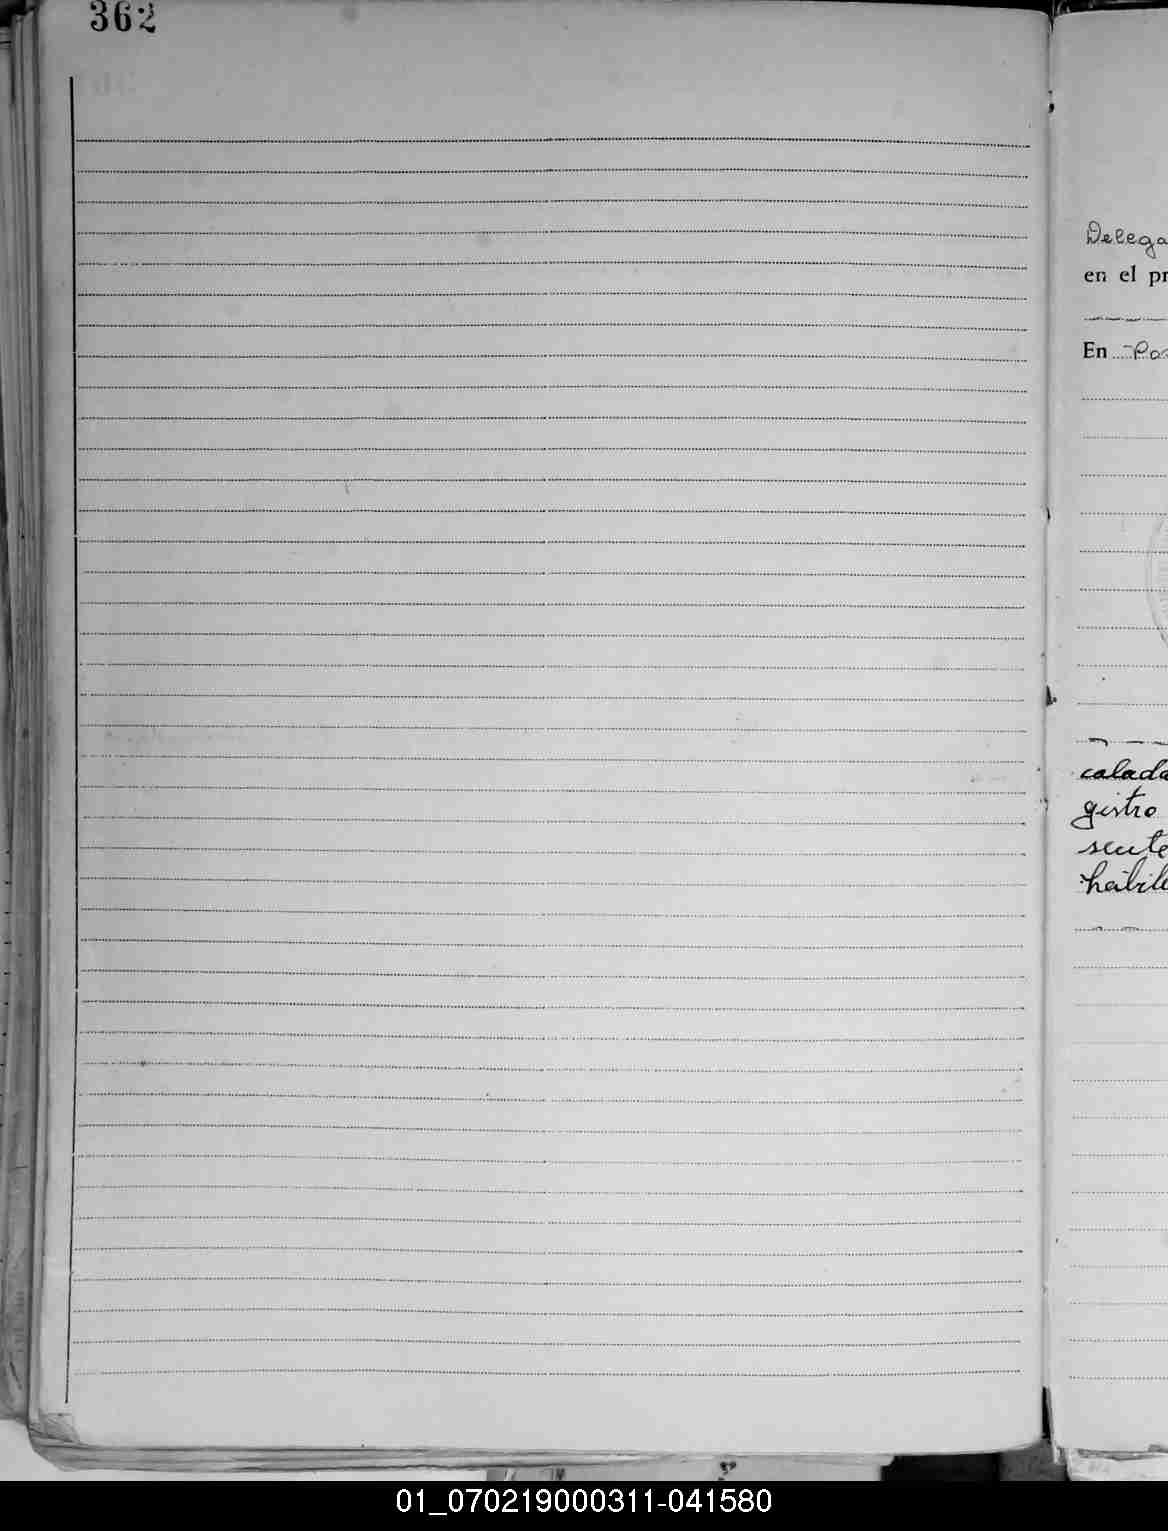 362
Delega
en el pr
En
calada
gistro
sente
habile
01_070219000311-041580